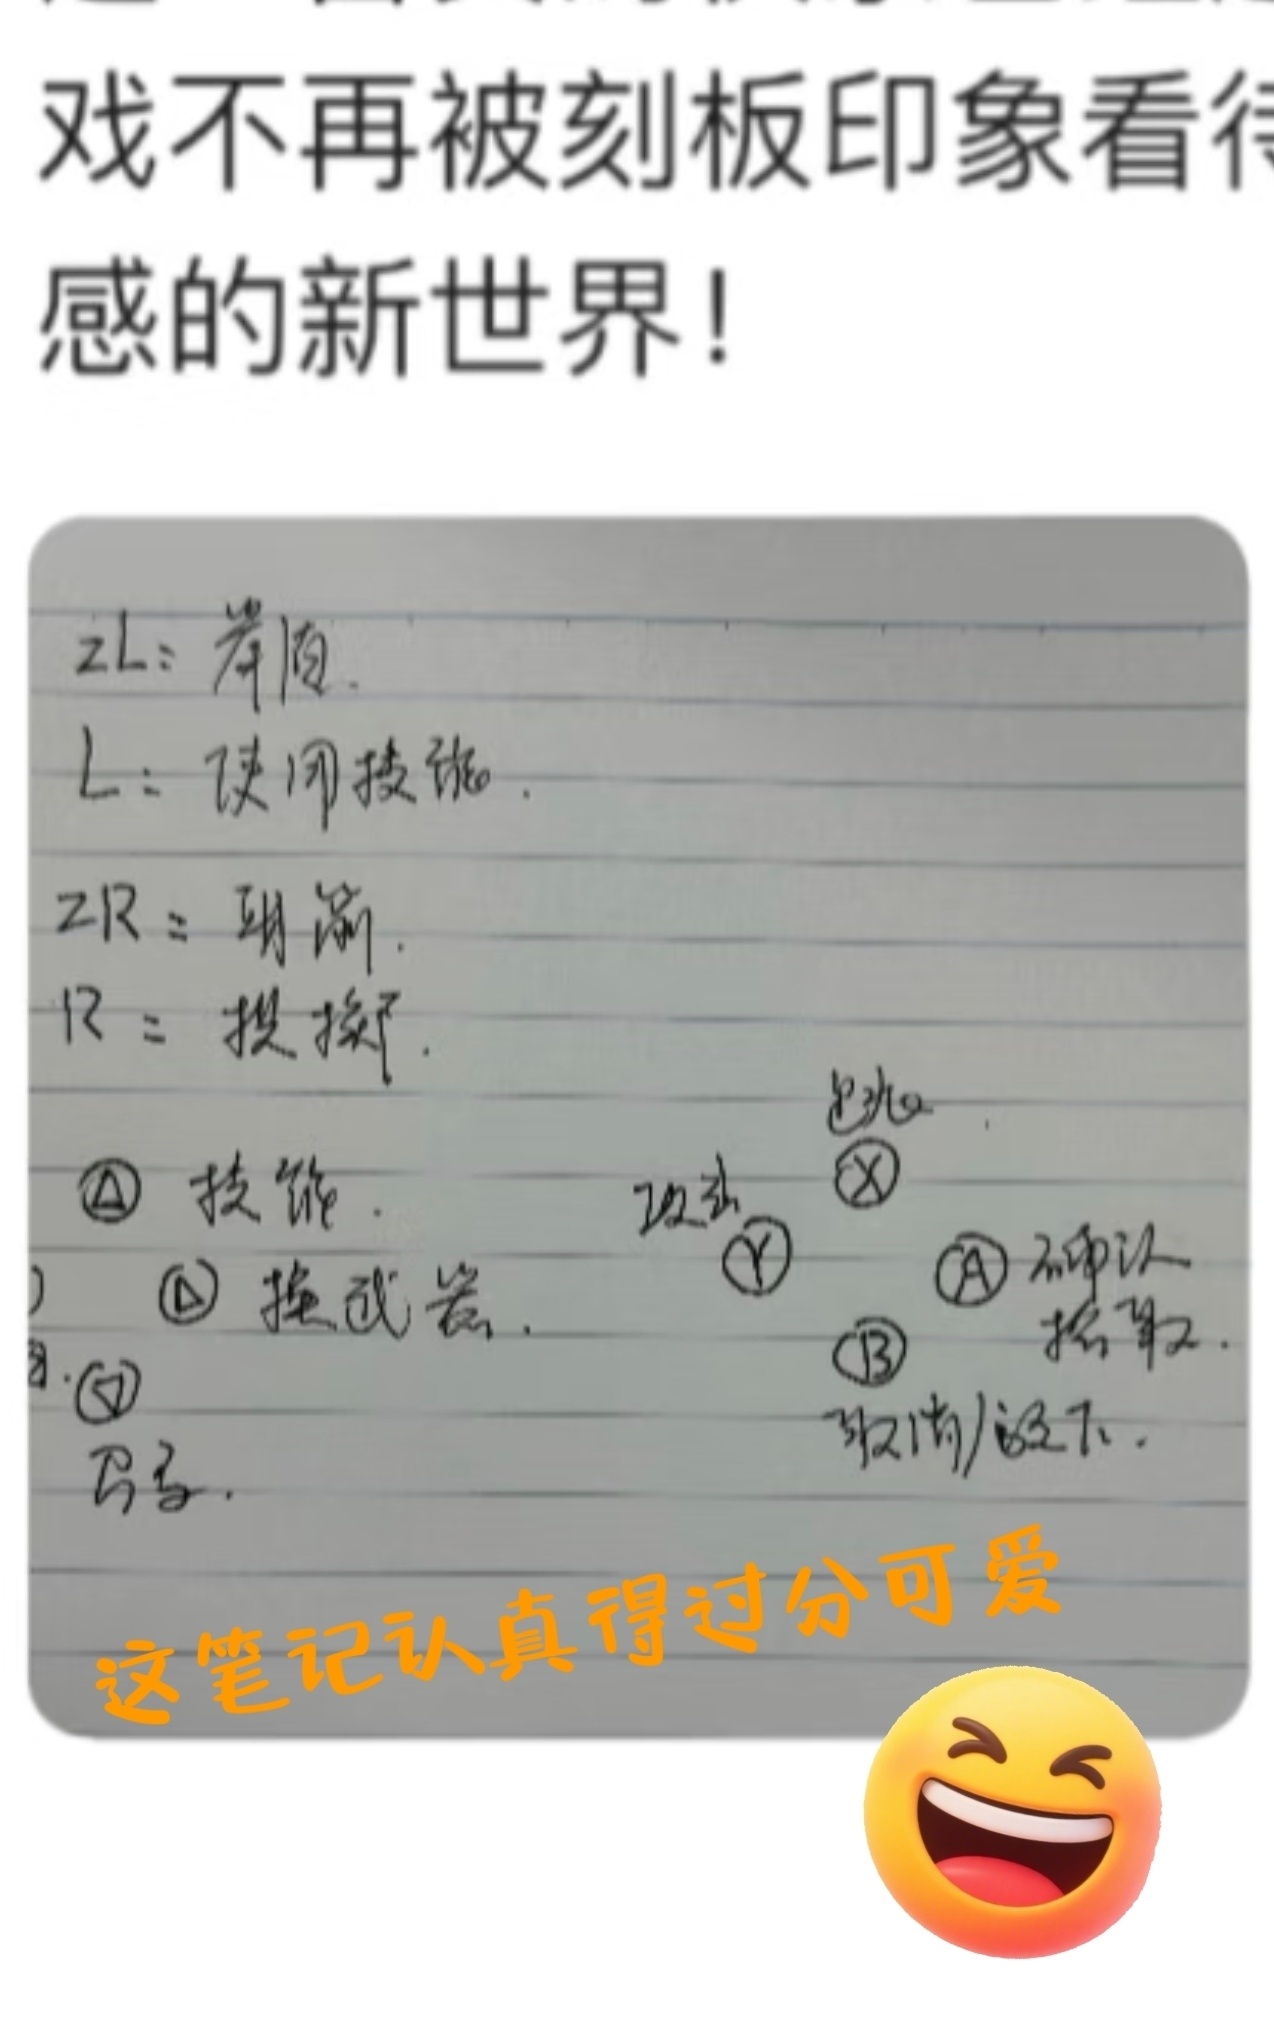 戏不再被刻板印象看待
感的新世界！
ZL：举盾.
L：使用技能.
ZR：射箭.
R：投掷.
跳
Ⓧ
△ 技能.
攻击
Ⓨ
Ⓐ 确认
拾取.
▷ 换武器.
Ⓑ
取消/放下.
▽
口哨.
这笔记认真得过分可爱